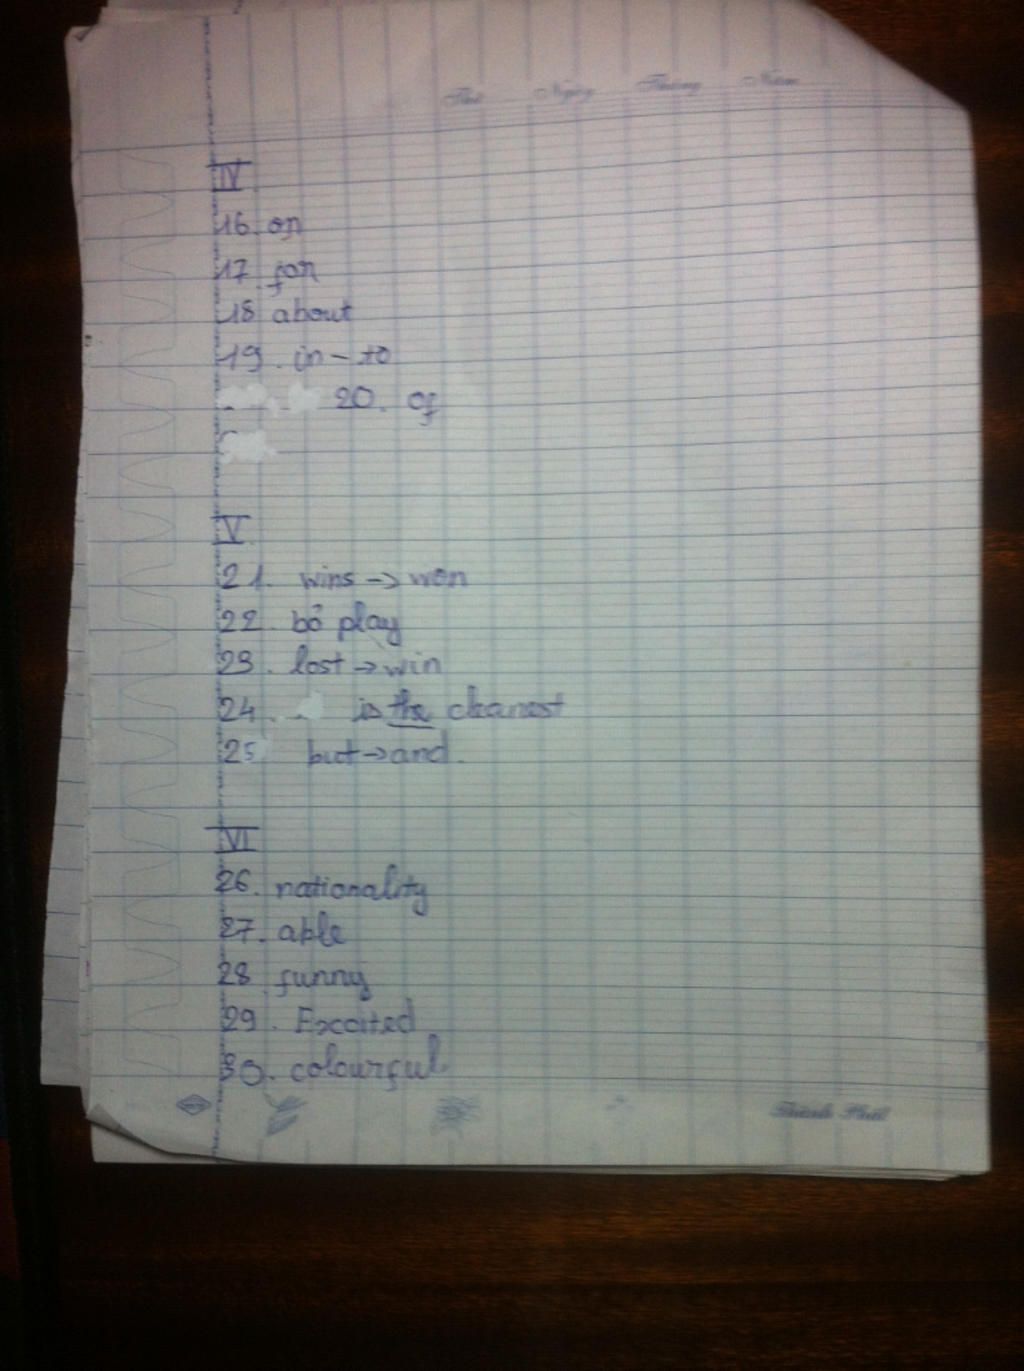 Thứ Ngày Tháng Năm
IV
16. on
17. for
18 about
19. in - to
20. of
V.
21. wins -> won
22. bỏ play
23. lost -> win
24. is the cleanest
25 but -> and.
VI
26. nationality
27. able
28 funny
29. Excited
30. colourful